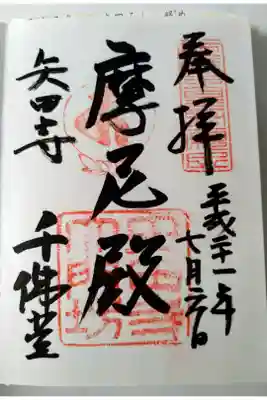 奉拝
平成二十一年
七月六日
摩尼殿
矢田寺
千佛堂